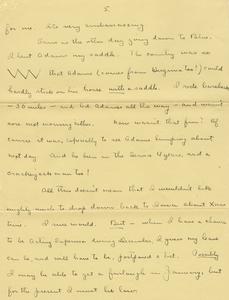 5.
for me. It's very embarrassing.
Came in the other day going down to
I lent Adams my saddle. The country was so
that Adams (comes from Virginia too!) could
hardly stick on his horse with a saddle. I rode bareback
- 30 miles - and led Adams all the way - and wasn't
sore next morning either. Now wasn't that fun? Of
course it was, especially to see Adams limping about
next day. And he been in the Service 4 years, and a
crackerjack man too!
All this doesn't mean that I wouldn't like
mighty much to drop down back to about Xmas
time. I sure would. But - when I have a chance
to be Acting Supervisor during December, I guess my leave
can be, and will have to be, postponed a bit. Possibly
I may be able to get a furlough in January, but
for the present I must lie low.